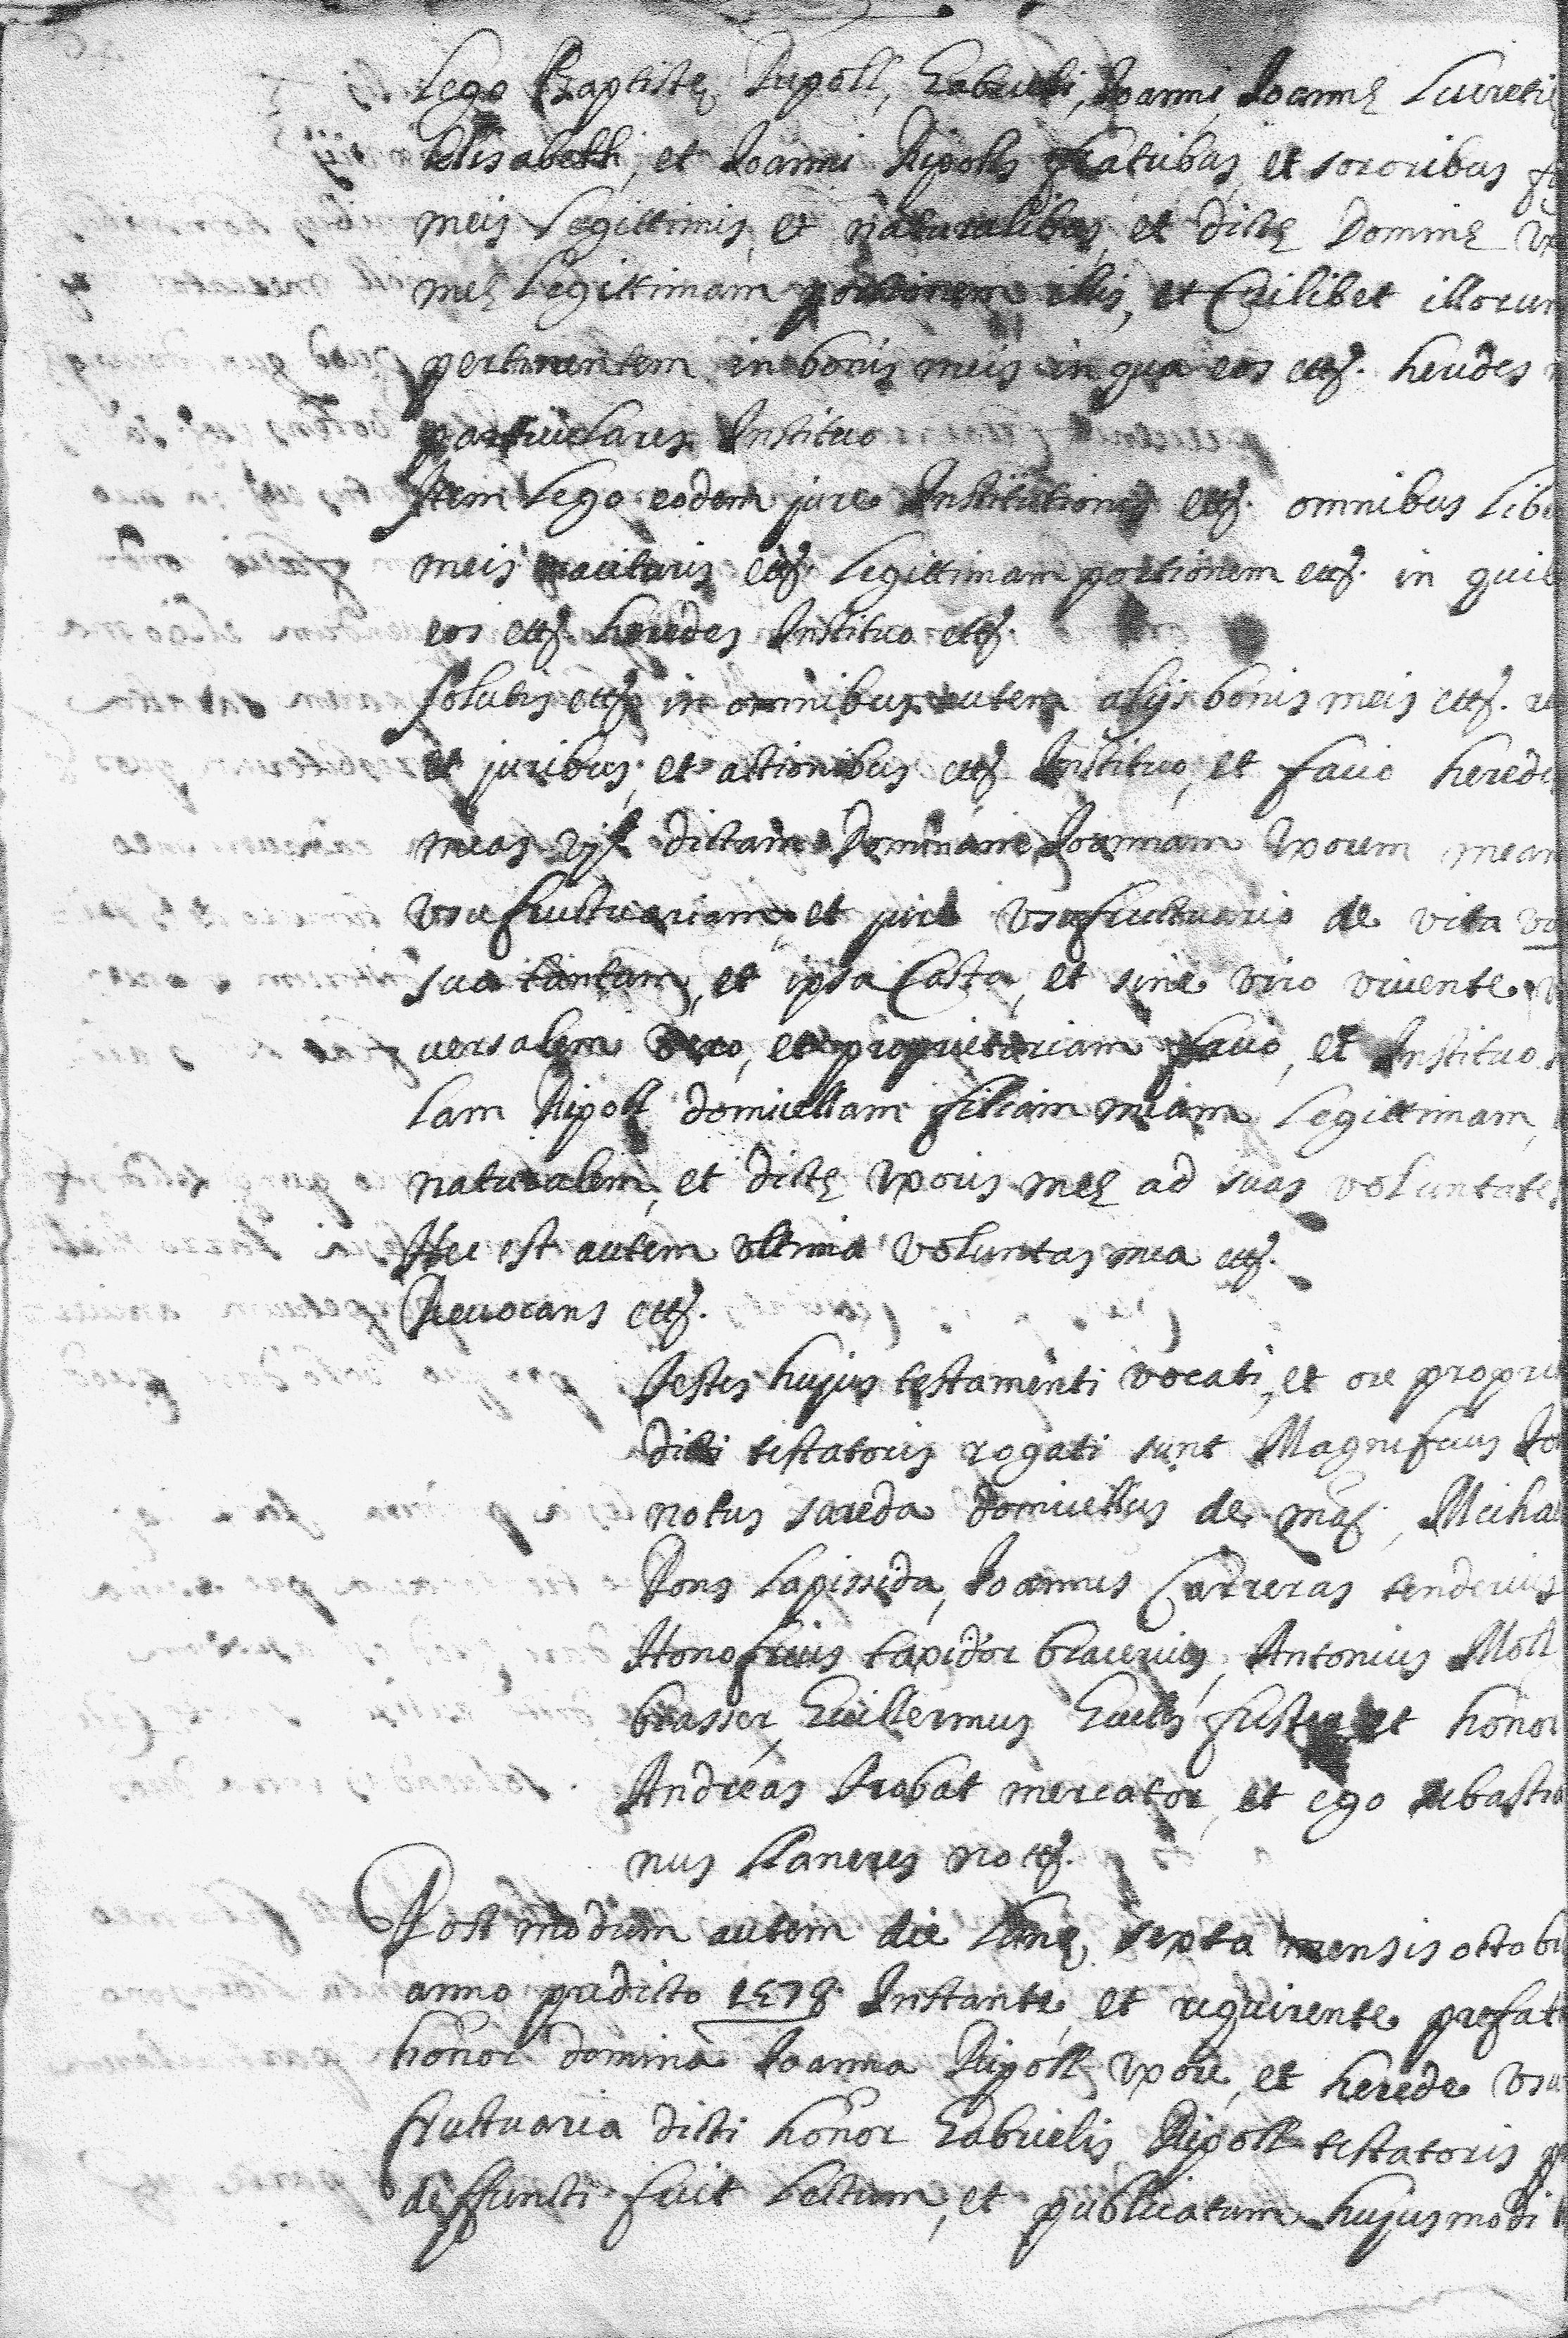 Lego Baptistę Ripoll, Gabrieli, Joanni, Joannę Lucretię
Elisabeth, et Joanni Ripolls fratribus, et sororibus
meis legittimis, et naturalibus, et dictę Dominę
meę legittimam portionem illis, et Cuilibet illorum
pertinentem in bonis meis in qua eos ettz. heredes
particulares Instituo
Item lego eodem jure Institutionis ettz. omnibus lib
meis nacituris ettz. legittimam portionem ettz. in quib
eos ettz. heredes Instituo ettz.
solutis ettz. in omnibus autem alijs bonis meis ettz.
et juribus, et actionibus ettz. Instituo, et facio hered
meas dictam Dominam Joannam Vxorem meam
vsufructuariam, et jure vsufructuario de vita
sua tantum, et ipsa Casta, et sine viro vivente,
versalem vero, et proprietariam facio, et Instituo
lam Ripoll domicellam filiam meam legittimam,
naturalem, et dictę vxoris meę ad suas voluntates
Hec est autem vltima voluntas mea ettz.
Revocans ettz.
Testes hujus testamenti vocati, et ore propri
dicti testatoris rogati sunt Magnificus
notus sareda domicellus de maz, Michael
Pons lapissida, Joannes Carreras tenderius
Honofrius tapidor bracerius, Antonius Moll
brasser, Guillermus Guells fuster et honor
Andreas Trobat mercator, et ego sebastia
nus llaneres nottz.
Post modum autem die lunę sexta mensis octobr
anno predicto 1578 Instante, et requirente prefat
honor domina Joanna Ripoll vxore, et herede vsu
fructuaria dicti honor Gabrielis Ripoll testatoris
deffuncti fuit lectum, et publicatum hujusmodi